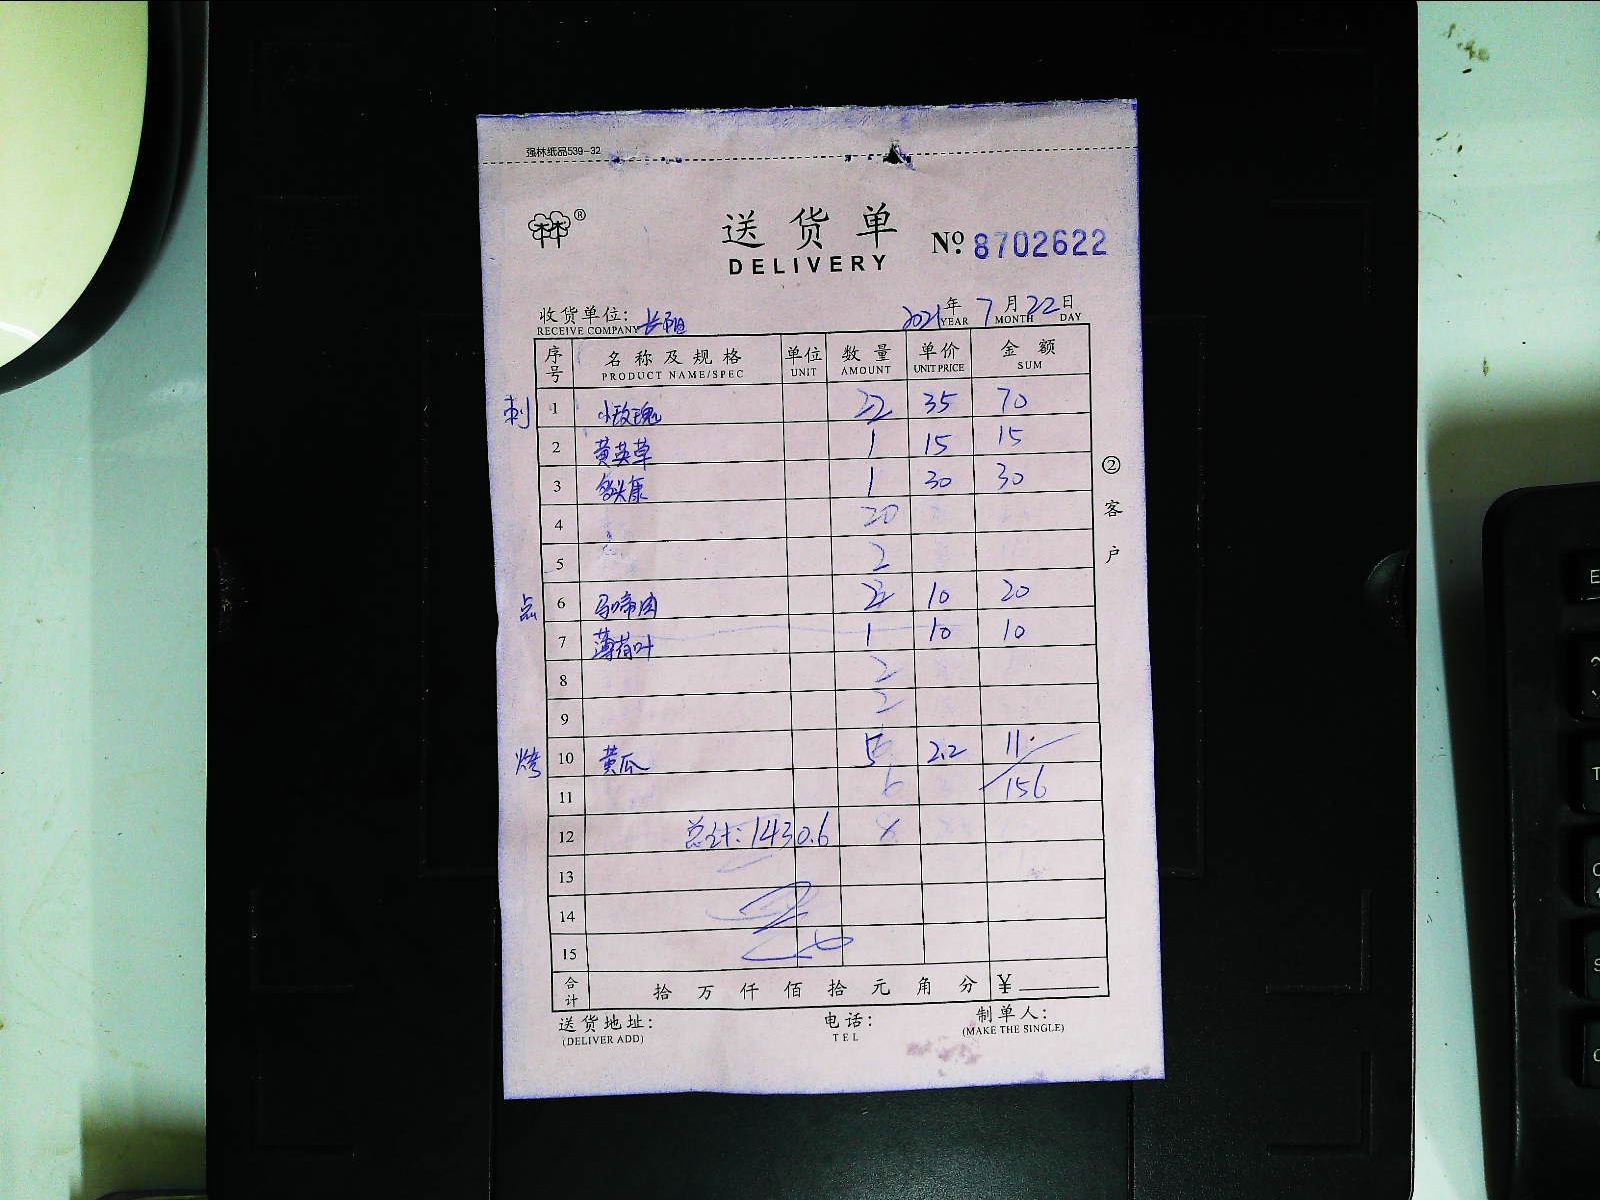 强林纸品539-32
送货单
DELIVERY
№ 8702622
收货单位: 长阳 2021年 7月 22日
RECEIVE COMPANY YEAR MONTH DAY
序号 名称及规格 单位 数量 单价 金额
PRODUCT NAME/SPEC UNIT AMOUNT UNIT PRICE SUM
刺 1 小玫瑰 2 35 70
2 黄英草 1 15 15
3 1 30 30
4 20
5 2
点 6 马啼肉 2 10 20
7 薄荷叶 1 10 10
8 2
9 2
烤 10 黄瓜 5 2.2 11.
11 6 156
12 总计:1430.6
13
14
15
合计 拾 万 仟 佰 拾 元 角 分 ¥
送货地址: 电话: 制单人:
(DELIVER ADD) TEL (MAKE THE SINGLE)
②客户